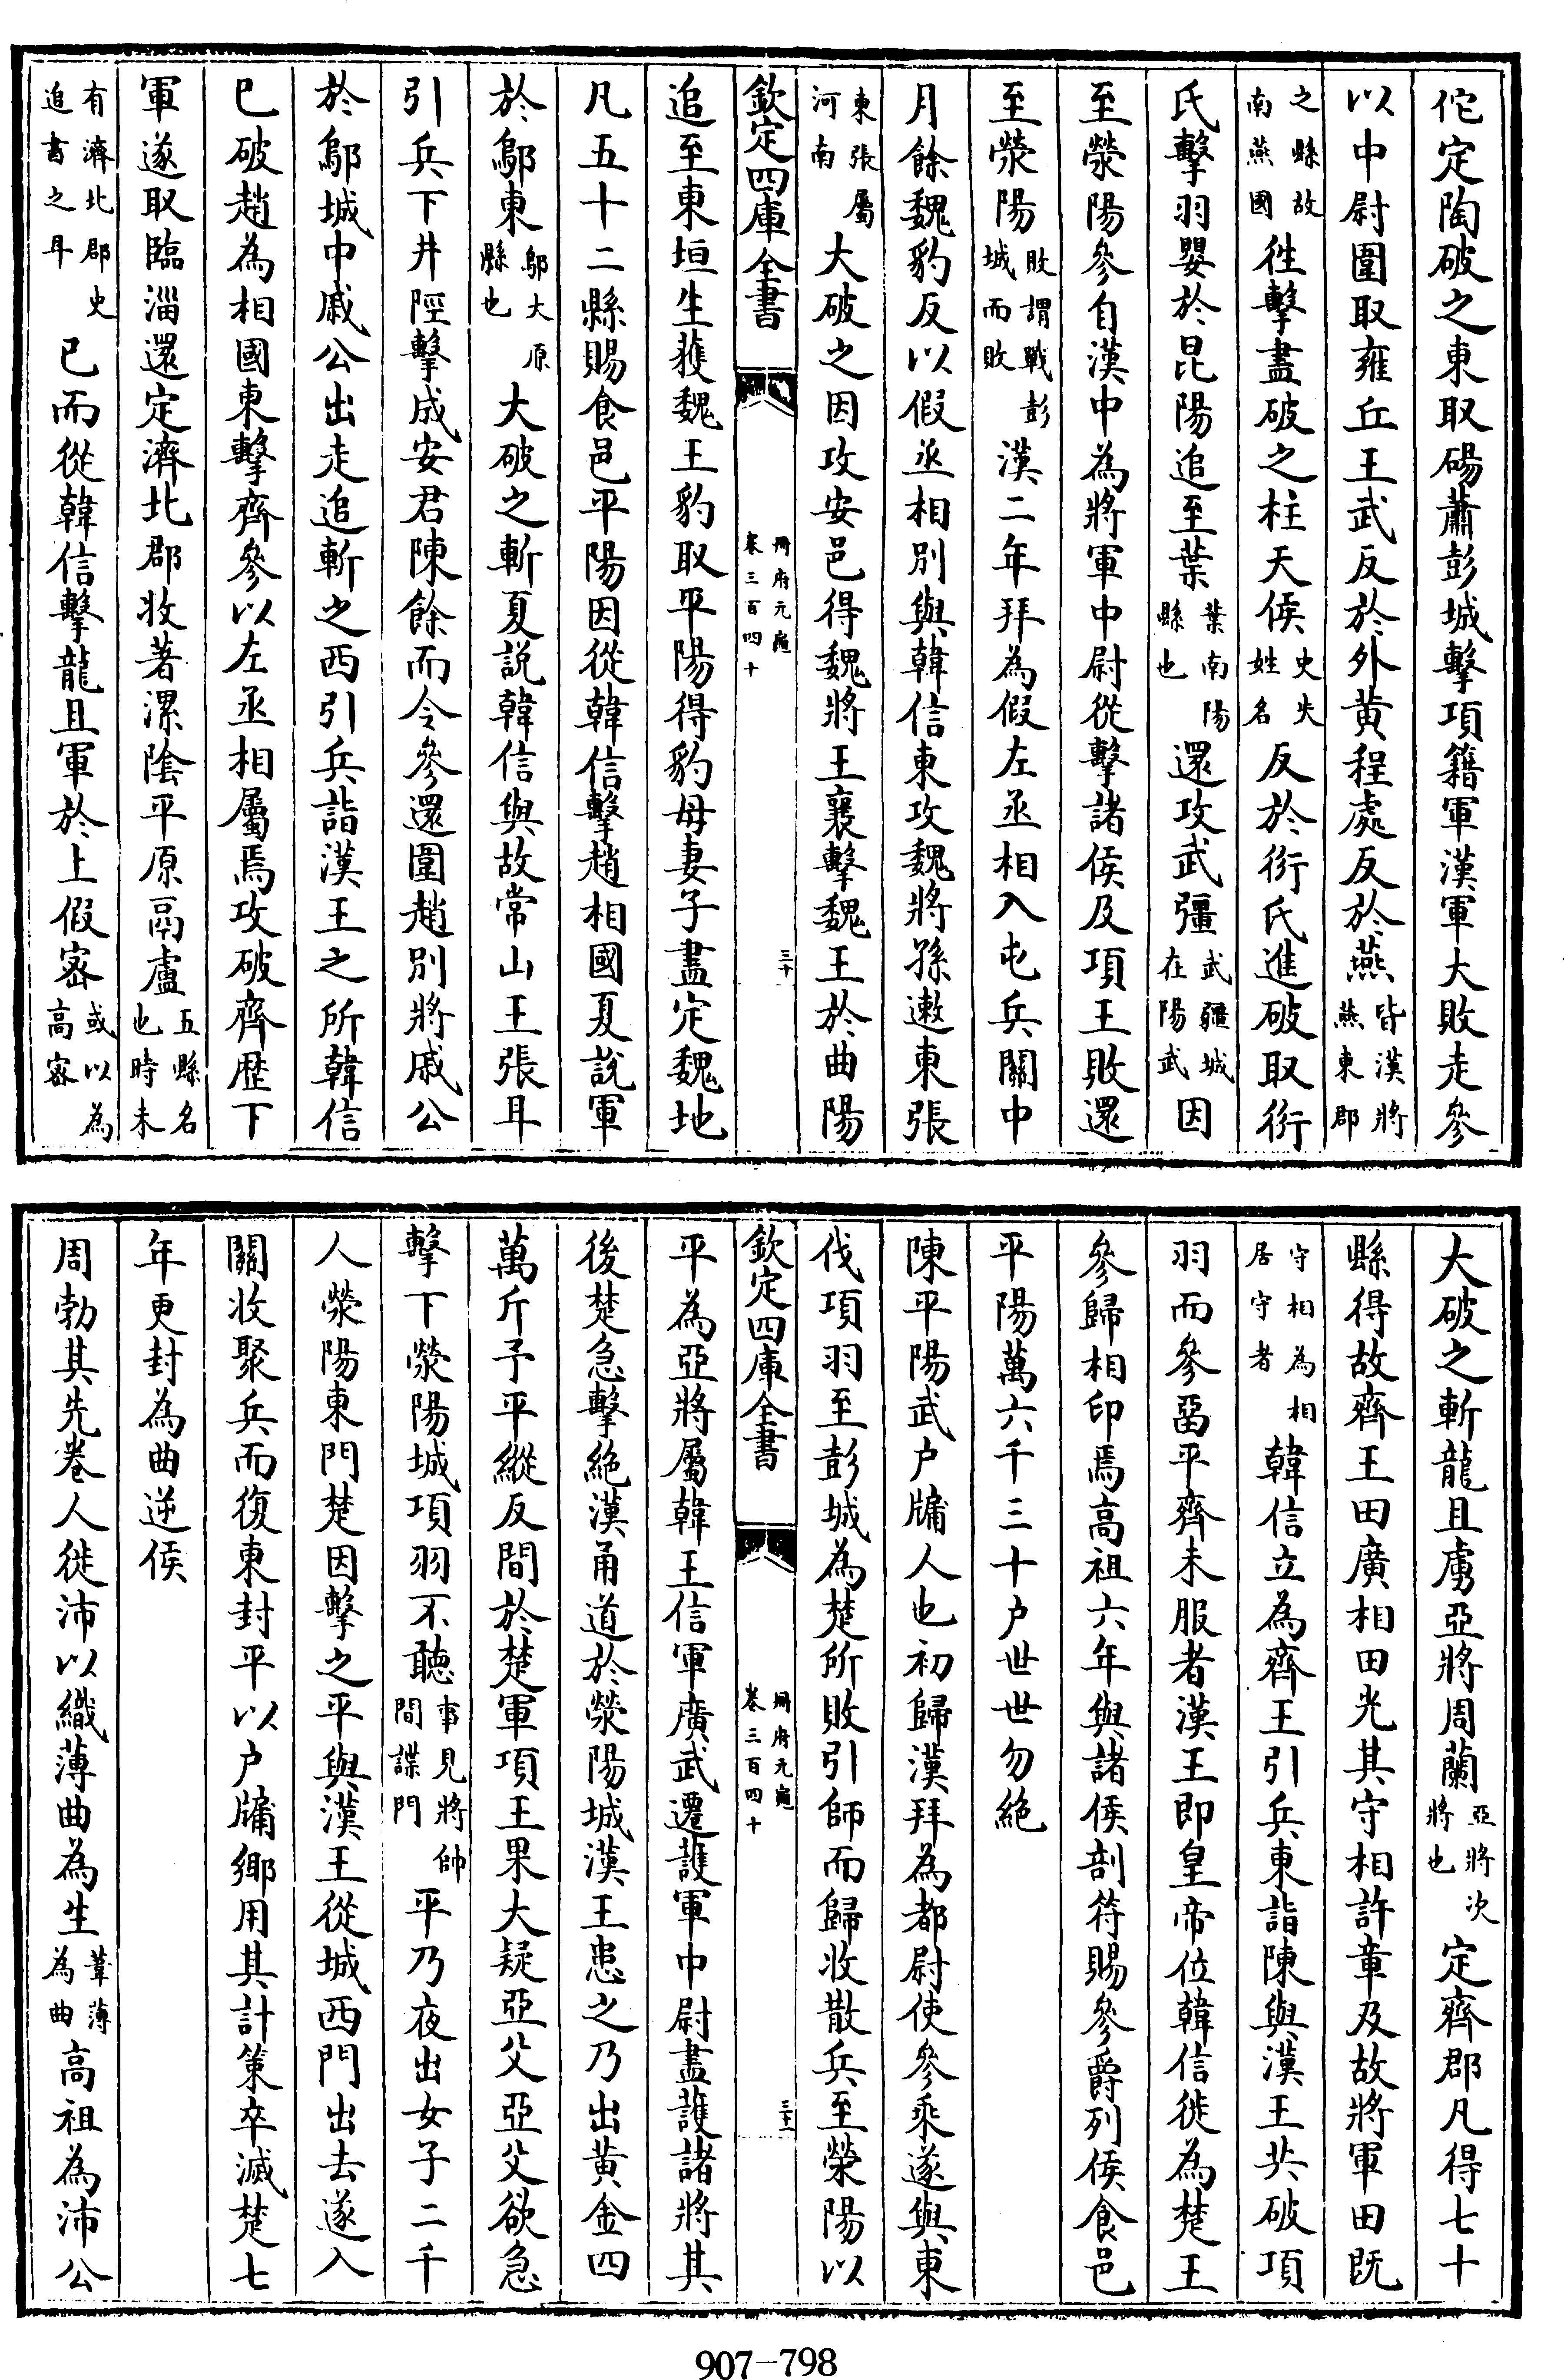 佗定陶破之東取碭蕭彭城擊項籍軍漢軍大敗走參
以中尉圍取雍丘王武反於外黄程處反於燕皆漢將燕東郡
之縣故南燕國徃擊盡破之柱天侯史失姓名反於衍氏進破取衍
氏擊羽嬰於昆陽追至葉葉南陽縣也還攻武彊武疆城在陽武因
至滎陽參自漢中為將軍中尉從擊諸侯及項王敗還
至滎陽敗謂戰彭城而敗漢二年拜為假左丞相入屯兵關中
月餘魏豹反以假丞相別與韓信東攻魏將孫遬東張
東張屬河南大破之因攻安邑得魏將王襄擊魏王於曲陽
欽定四庫全書
冊府元龜
卷三百四十
三十
追至東垣生獲魏王豹取平陽得豹母妻子盡定魏地
凡五十二縣賜食邑平陽因從韓信擊趙相國夏說軍
於鄔東鄔大原縣也大破之斬夏說韓信與故常山王張耳
引兵下井陘擊成安君陳餘而令參還圍趙別將戚公
於鄔城中戚公出走追斬之西引兵詣漢王之所韓信
已破趙為相國東擊齊參以左丞相屬焉攻破齊歴下
軍遂取臨淄還定濟北郡收著漯陰平原鬲盧五縣名也時未
有濟北郡史追書之耳已而從韓信擊龍且軍於上假宻或以為高宻
大破之斬龍且虜亞將周蘭亞將次將也定齊郡凡得七十
縣得故齊王田廣相田光其守相許章及故將軍田既
守相為相居守者韓信立為齊王引兵東詣陳與漢王共破項
羽而參留平齊未服者漢王即皇帝位韓信徙為楚王
參歸相印焉高祖六年與諸侯剖符賜參爵列侯食邑
平陽萬六千三十户世世勿絶
陳平陽武户牖人也初歸漢拜為都尉使參乘遂與東
伐項羽至彭城為楚所敗引師而歸收散兵至滎陽以
欽定四庫全書
冊府元龜
卷三百四十
三十一
平為亞將屬韓王信軍廣武遷護軍中尉盡護諸將其
後楚急擊絶漢甬道於滎陽城漢王患之乃出黄金四
萬斤予平縱反間於楚軍項王果大疑亞父亞父欲急
擊下滎陽城項羽不聽事見將帥間諜門平乃夜出女子二千
人滎陽東門楚因擊之平與漢王從城西門出去遂入
關收聚兵而復東封平以户牖鄉用其計策卒滅楚七
年更封為曲逆侯
周勃其先卷人徙沛以織薄曲為生葦薄為曲高祖為沛公
907-798